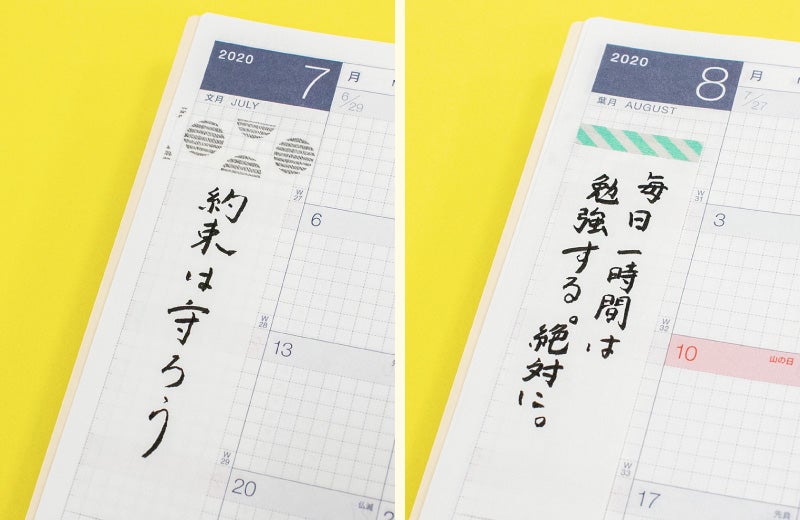 2020 7
月
文月 JULY
6/29
W27
6
W28
13
W29
20
仏滅
約束は守ろう
2020 8
月
葉月 AUGUST
7/27
W31
3
W32
10 山の日
W33
17
先負
毎日一時間は
勉強する。絶対に。